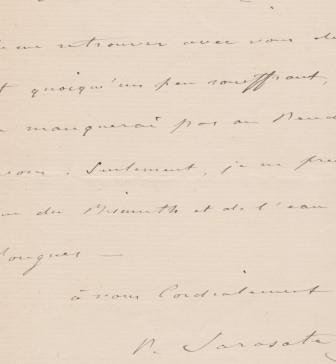 me retrouver avec vous de
t quoiqu'un peu souffrant,
manquerai pas au Rend
vous. Seulement, je ne pre
que du Bismuth et de l'eau
Longues —
à vous Cordialement
P. Sarasate